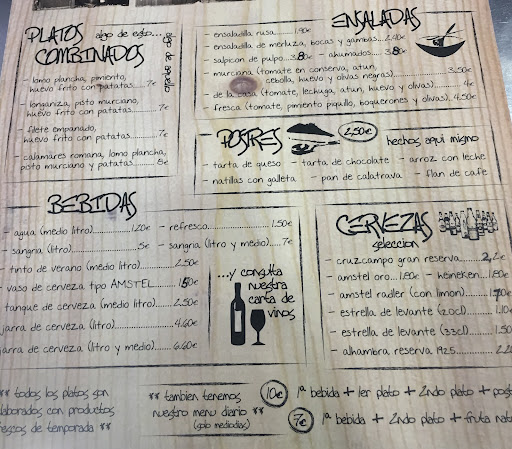 PLATOS COMBINADOS
algo de esto...
algo de aquello
- lomo plancha, pimiento,
huevo frito con patatas.......7€
- longaniza, pisto murciano,
huevo frito con patatas.......7€
- filete empanado,
huevo frito con patatas.......7€
- calamares romana, lomo plancha,
pisto murciano y patatas.......8€
ENSALADAS
- ensaladilla rusa.......1.90€
- ensaladilla de merluza, bocas y gambas..2.40€
- salpicon de pulpo...3.80€ - ahumados....3.80€
- murciana (tomate en conserva, atun,
cebolla, huevo y olivas negras).......3.50€
- de la (tomate, lechuga, atun, huevo y olivas).......4€
- fresca (tomate, pimiento piquillo, boquerones y olivas).4.50€
POSTRES
2,50€
hechos aqui mismo
- tarta de queso - tarta de chocolate - arroz con leche
- natillas con galleta - pan de calatrava - flan de cafe
BEBIDAS
- agua (medio litro).......1.20€ - refresco.......1.50€
- sangria (litro).......5€ - sangria (litro y medio)..7€
- tinto de verano (medio litro).......2.50€
- vaso de cerveza tipo AMSTEL.......€
- tanque de cerveza (medio litro).......2.50€
jarra de cerveza (litro).......4.60€
jarra de cerveza (litro y medio).......6.60€
...y consulta
nuestra
carta de
vinos
CERVEZAS
seleccion
- cruzcampo gran reserva.......€
- amstel oro...€ - heineken...€
- amstel radler (con limon)....€
- estrella de levante (20cl).......1.10€
- estrella de levante (33cl).......1.50
- alhambra reserva 1925.......2.20
** todos los platos son
elaborados con productos
frescos de temporada **
** tambien tenemos
nuestro menu diario **
(solo mediodias)
10€ 1ª bebida + 1er plato + 2ndo plato + post
7€ 1ª bebida + 2ndo plato + fruta nat